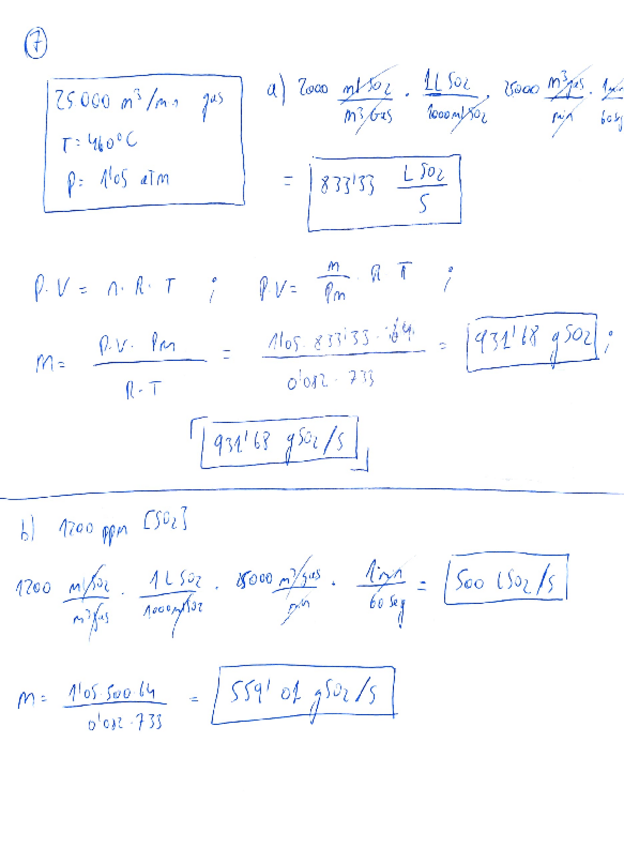 7
25000 m³/min gas
T = 460ºC
P = 1'05 atm
a) 2000 ml SO2/m³ Gas · 1L SO2/1000 ml SO2 · 25000 m³ gas/min · 1 min/60 seg
= 833'33 L SO2/S
P·V = n·R·T ; P·V = m/Pm · R T ;
M = P·V·Pm/R·T = 1'05·833'33·64/0'082·733 = 931'68 g SO2 ;
931'68 g SO2/S
b) 1200 ppm [SO2]
1200 ml SO2/m³ gas · 1L SO2/1000 ml SO2 · 25000 m³ gas/min · 1 min/60 seg = 500 L SO2/S
M = 1'05·500·64/0'082·733 = 559'01 g SO2/S